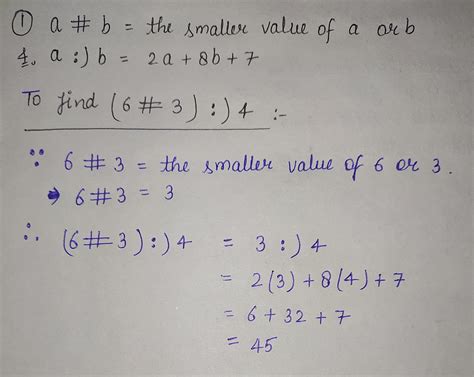 ① a # b = the smaller value of a or b
&. a :) b = 2a + 8b + 7
To find (6 # 3) :) 4 :-
∵ 6 # 3 = the smaller value of 6 or 3.
➔ 6 # 3 = 3
∴ (6 # 3) :) 4 = 3 :) 4
= 2(3) + 8(4) + 7
= 6 + 32 + 7
= 45